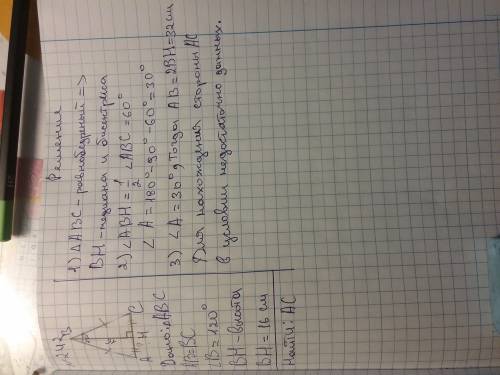 B
A H C
Дано: △ABC
AB=BC
∠B = 120°
BH - высота
BH = 16 см
Найти: AC
Решение
1) △ABC - равнобедренный =>
BH - медиана и биссектриса
2) ∠ABH = 1/2 ∠ABC = 60°
∠A = 180° - 90° - 60° = 30°
3) ∠A = 30°, тогда AB = 2BH = 32 см
Для нахождения стороны AC
в условии недостаточно данных.